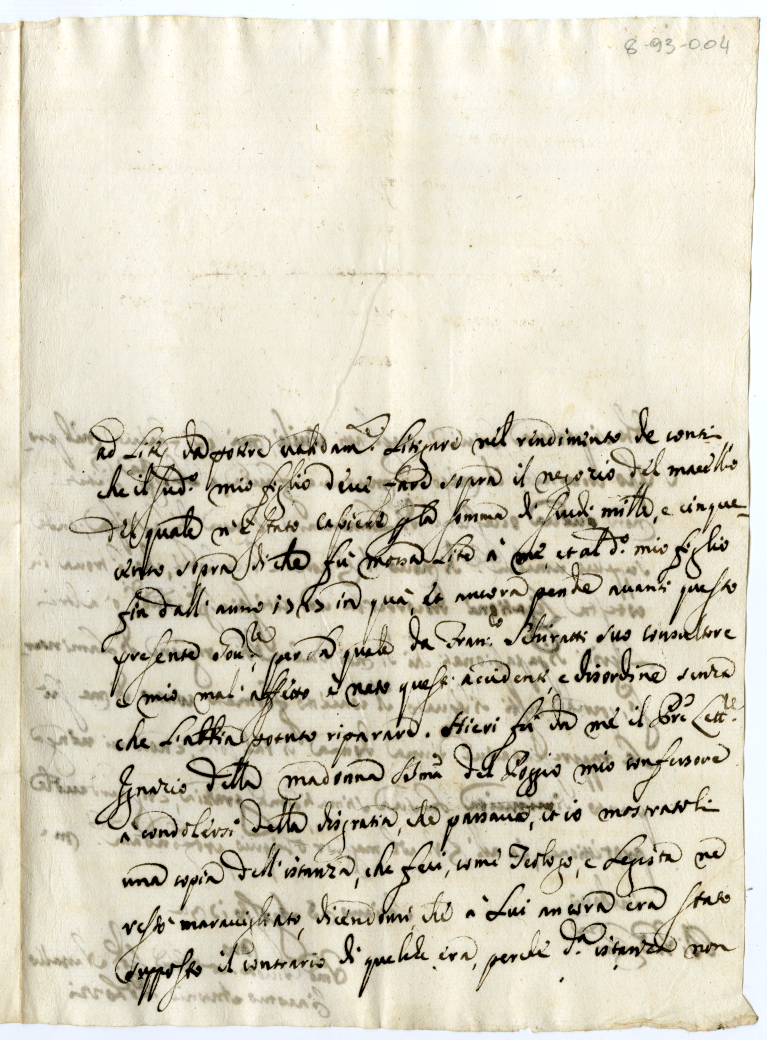 8-93-004
ad Lites da potere validam.te Litigare nel rendimento de conti
che il sud.o mio figlio deve fare sopra il negozio del macello
del quale n'è stato Cassiere p la somma di scudi mille, e cinque-
cento sopra di che fù mossa Lite à me, et al d.o mio figlio
fin dall' anno in quà, et ancora pende avanti questo
presente per la quale da Fran.co Schiratti suo consultore
e mio mal' affetto è nato questi accidenti, e disordine senza
che L'abbia potuto riparare. Hieri fù da me il Pre Lett.re
Ignazio della madonna SSma del Poggio mio confessore
à condolersi della disgratia, che passavo, et io mostratoli
una copia dell' istanza, che feci, come Teologo, e Legista ne
restò maravigliato, dicendomi che à Lui ancora era stato
supposto il contrario di quello che era, perche d.a istanza non